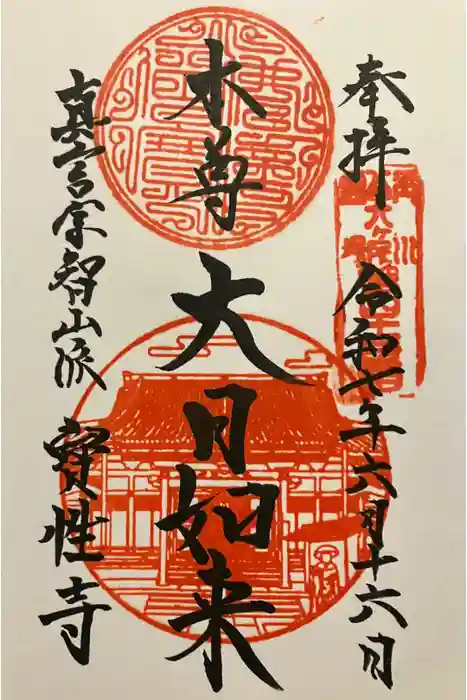 奉拝
令和七年六月十六日
本尊
大日如来
真言宗智山派
寳性寺